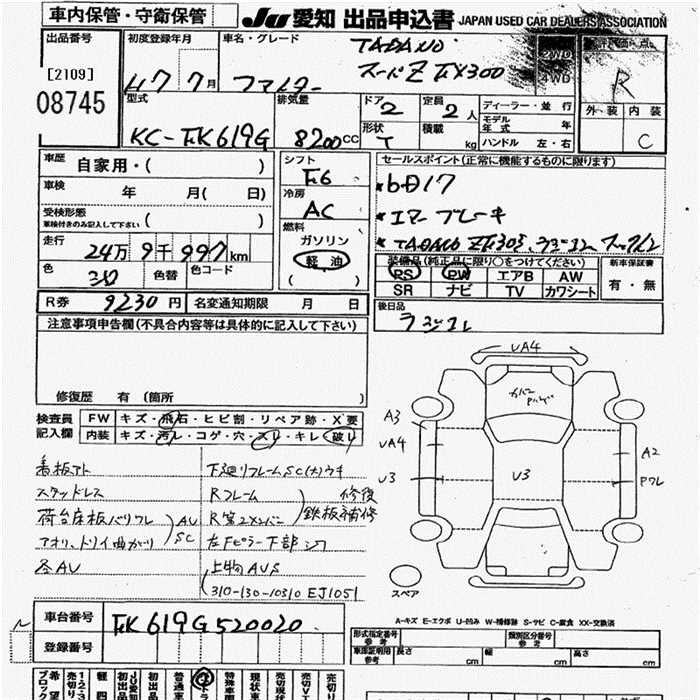 車内保管・守衛保管
JU愛知 出品申込書 JAPAN USED CAR DEALERS ASSOCIATION
出品番号
[2109]
08745
初度登録年月
車名・グレード
H7 7月
ファイター
TADANO
スーパーZ ZX300
2WD
4WD
R
外装 内装
C
型式
KC-FK619G
排気量
8200CC
ドア
2
形状
定員
2人
積載
kg
ディーラー・並行
モデル年式
年
ハンドル 左・右
車歴
自家用・( )
車検
年 月( 日)
受検形態
車検付きのみ記入して下さい
( )
走行
24万9千997km
色
色替
色コード
シフト
F6
冷房
AC
燃料
ガソリン
軽油
( )
セールスポイント(正常に機能するものに限ります)
*6D17
*エアーブレーキ
装備品(純正品に限り○をつけてください)
PS PW エアB AW
SR ナビ TV カワシート
新車保証書
有・無
R券 9230円
名変通知期限 月 日
後日品
ラジコン
注意事項申告欄(不具合内容等は具体的に記入して下さい)
修復歴 有 (箇所
検査員
記入欄
FW キズ・飛石・ヒビ割・リペア跡・X要
内装 キズ・汚レ・コゲ・穴・スレ・キレ・破レ
看板アト
下廻リフレームSC(大)ウキ
ステッドレス
Rフレーム
修復
荷台床板バリワレ
AU
SC
鉄板補修
アオリ、トリイ曲がり
左Fピラー下部シワ
各AU
上物AUS
310-130-10310 EJ1051
UA4
A3
UA4
U3
U3
A2
Pワレ
スペア
車台番号 FK619G520020
登録番号
A-キズ E-エクボ U-凹み W-補修跡 S-サビ C-腐食 XX-交換済
形式指定番号
参考
類別区分番号
参考
車庫証明用
参考
長さ
cm
幅
cm
高さ
cm